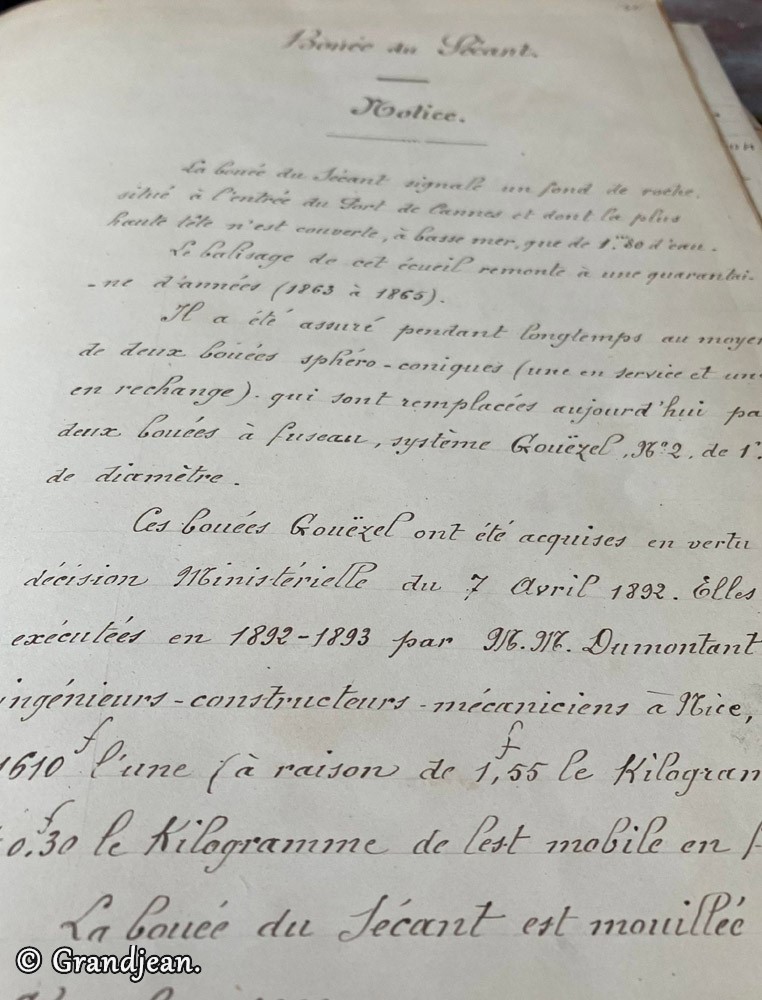 Bouée du Sécant.
Notice.
La bouée du Sécant signale un fond de roche,
situé à l'entrée du Port de Cannes et dont la plus
haute tête n'est couverte, à basse mer, que de 1.m80 d'eau.
Le balisage de cet écueil remonte à une quarantai-
-ne d'années (1863 à 1865).
Il a été assuré pendant longtemps au moyen
de deux bouées sphéro-coniques (une en service et un
en rechange). qui sont remplacées aujourd'hui pa
deux bouées à fuseau, système Gouëzel, No 2, de 1
de diamètre.
Ces bouées Gouëzel ont été acquises en vertu
décision Ministérielle du 7 Avril 1892. Elles
exécutées en 1892-1893 par M.M. Dumontant
ingénieurs-constructeurs-mécaniciens à Nice,
1610f l'une (à raison de 1,f55 le Kilogram
0,f30 le Kilogramme de lest mobile en f
La bouée du Sécant est mouillée
© Grandjean.